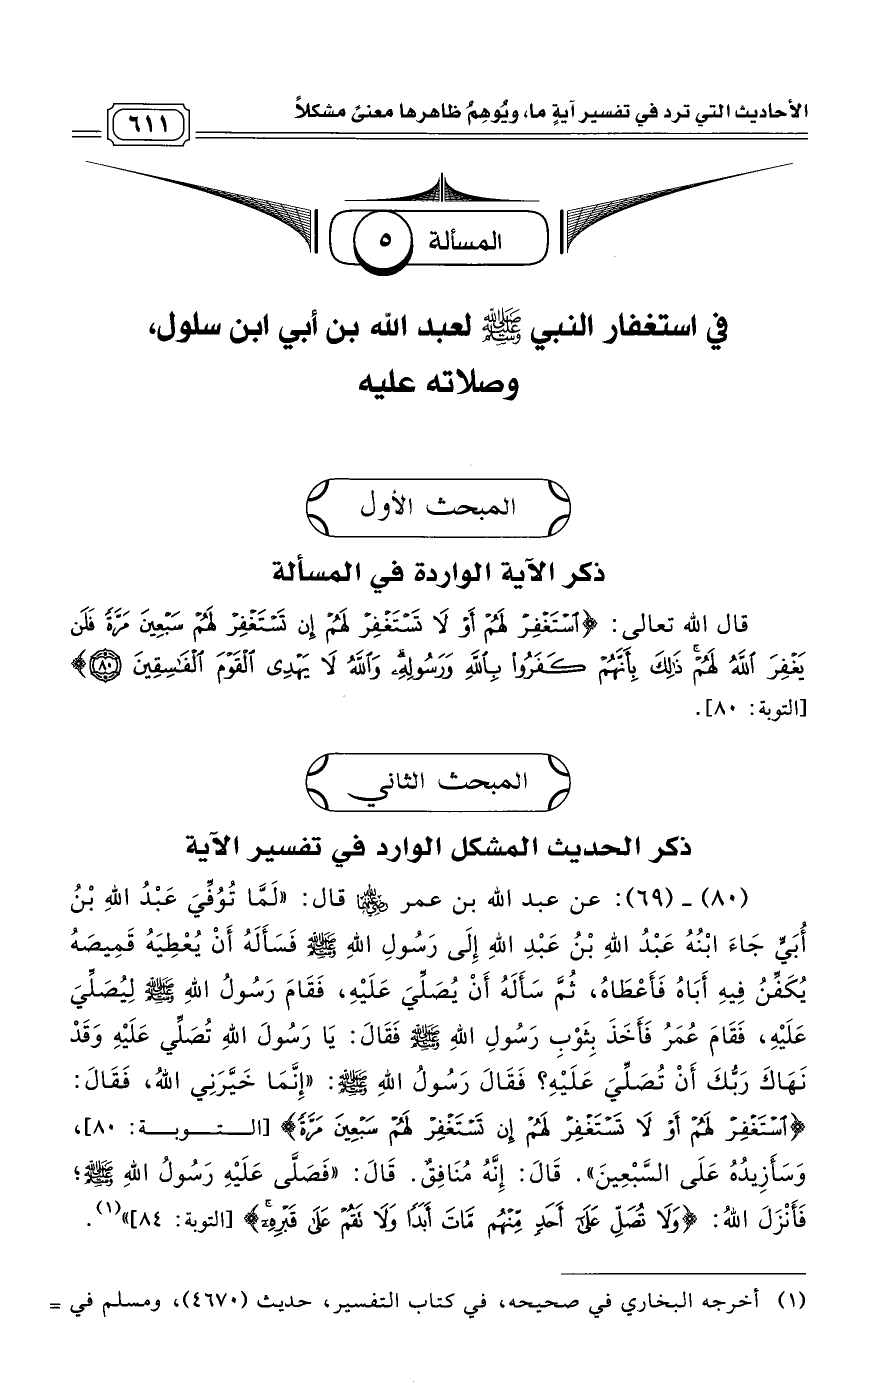 الأحاديث التي ترد في تفسير آيةٍ ما، ويُوهِمُ ظاهرها معنىً مشكلاً
٦١١
المسألة ٥
في استغفار النبي ﷺ لعبد الله بن أبي ابن سلول،
وصلاته عليه
المبحث الأول
ذكر الآية الواردة في المسألة
قال الله تعالى: ﴿ٱسْتَغْفِرْ لَهُمْ أَوْ لَا تَسْتَغْفِرْ لَهُمْ إِن تَسْتَغْفِرْ لَهُمْ سَبْعِينَ مَرَّةً فَلَن
يَغْفِرَ ٱللَّهُ لَهُمْۚ ذَٰلِكَ بِأَنَّهُمْ كَفَرُوا۟ بِٱللَّهِ وَرَسُولِهِۦۗ وَٱللَّهُ لَا يَهْدِى ٱلْقَوْمَ ٱلْفَٰسِقِينَ ﴿٨٠﴾﴾
[التوبة: ٨٠].
المبحث الثاني
ذكر الحديث المشكل الوارد في تفسير الآية
(٨٠) ـ (٦٩): عن عبد الله بن عمر رضي الله عنهما قال: «لَمَّا تُوُفِّيَ عَبْدُ اللهِ بْنُ
أُبَيٍّ جَاءَ ابْنُهُ عَبْدُ اللهِ بْنُ عَبْدِ اللهِ إِلَى رَسُولِ اللهِ ﷺ فَسَأَلَهُ أَنْ يُعْطِيَهُ قَمِيصَهُ
يُكَفِّنُ فِيهِ أَبَاهُ فَأَعْطَاهُ، ثُمَّ سَأَلَهُ أَنْ يُصَلِّيَ عَلَيْهِ، فَقَامَ رَسُولُ اللهِ ﷺ لِيُصَلِّيَ
عَلَيْهِ، فَقَامَ عُمَرُ فَأَخَذَ بِثَوْبِ رَسُولِ اللهِ ﷺ فَقَالَ: يَا رَسُولَ اللهِ تُصَلِّي عَلَيْهِ وَقَدْ
نَهَاكَ رَبُّكَ أَنْ تُصَلِّيَ عَلَيْهِ؟ فَقَالَ رَسُولُ اللهِ ﷺ: «إِنَّمَا خَيَّرَنِي اللهُ، فَقَالَ:
﴿ٱسْتَغْفِرْ لَهُمْ أَوْ لَا تَسْتَغْفِرْ لَهُمْ إِن تَسْتَغْفِرْ لَهُمْ سَبْعِينَ مَرَّةً﴾ [التوبة: ٨٠]،
وَسَأَزِيدُهُ عَلَى السَّبْعِينَ». قَالَ: إِنَّهُ مُنَافِقٌ. قَالَ: «فَصَلَّى عَلَيْهِ رَسُولُ اللهِ ﷺ؛
فَأَنْزَلَ اللهُ: ﴿وَلَا تُصَلِّ عَلَىٰٓ أَحَدٍ مِّنْهُم مَّاتَ أَبَدًا وَلَا تَقُمْ عَلَىٰ قَبْرِهِۦٓۚ﴾ [التوبة: ٨٤]»(١).
(١) أخرجه البخاري في صحيحه، في كتاب التفسير، حديث (٤٦٧٠)، ومسلم في =